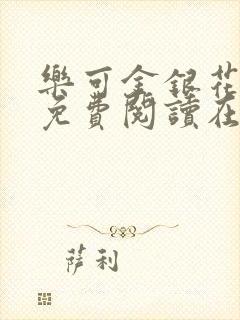 樂可金銀花
免費閱讀在
薩利